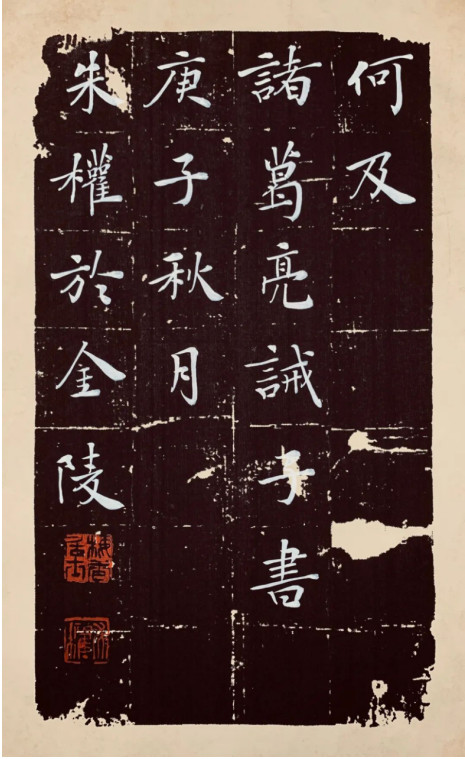 何及
諸葛亮誡子書
庚子秋月
朱權於金陵